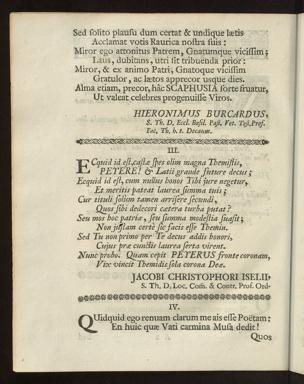 Sed solito plausu dum certat & undique lætis
Acclamat votis Raurica nostra suis:
Miror ego attonitus Patrem, Gnatumque vicissim;
Laus, dubitans, utri sit tribuenda prior:
Miror, & ex animo Patri, Gnatoque vicissim
Gratulor, ac lætos apprecor usque dies.
Alma etiam, precor, hâc SCAPHUSIA sorte fruatur,
Ut valeat celebres progenuisse Viros.
HIERONIMUS BURCARDUS,
S. Th. D. Eccl. Basil. Past. Vet. Test. Prof.
Fac. Th. h. t. Decanus.
III.
ECquid id est, castæ spes olim magna Themistis,
PETERE! & Latii grande future decus;
Ecquid id est, cum nullus honos Tibi jure negetur,
Et meritis pateat laurea summa tuis;
Cur tituli solùm tamen arrisere secundi,
Quos sibi dedecori cætera turba putat?
Seu mos hoc patriæ, seu summa modestia suasit;
Non certè sic facis esse Themin.
Sed Tu non primo per Te decus addis honori,
Cujus præ cunctis laurea serta virent.
Nunc probo. Quam cepit PETERUS fronte coronam,
Vixe vincit Themidis sola corona Deæ.
JACOBI CHRISTOPHORI ISELII,
S. Th. D, Loc. Com. & Contr. Prof. Ord.
IV.
QUidquid ego renuam clarum me ais esse Poëtam:
En huic quæ Vati carmina Musa dedit!
Quos